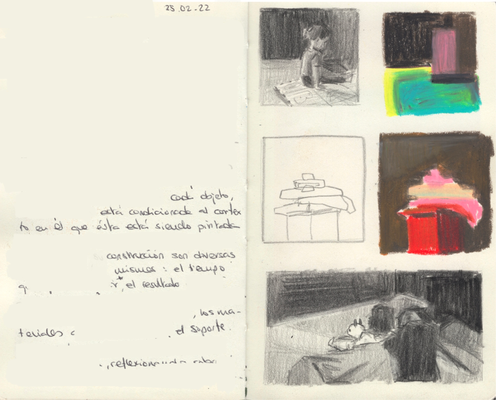 23.02.22
cada objeto,
está condicionada al contex
to en él que ésta está siendo pintada
construcción son diversas
mismas: el tiempo
, el resultado
, los ma-
teriales
el soporte.